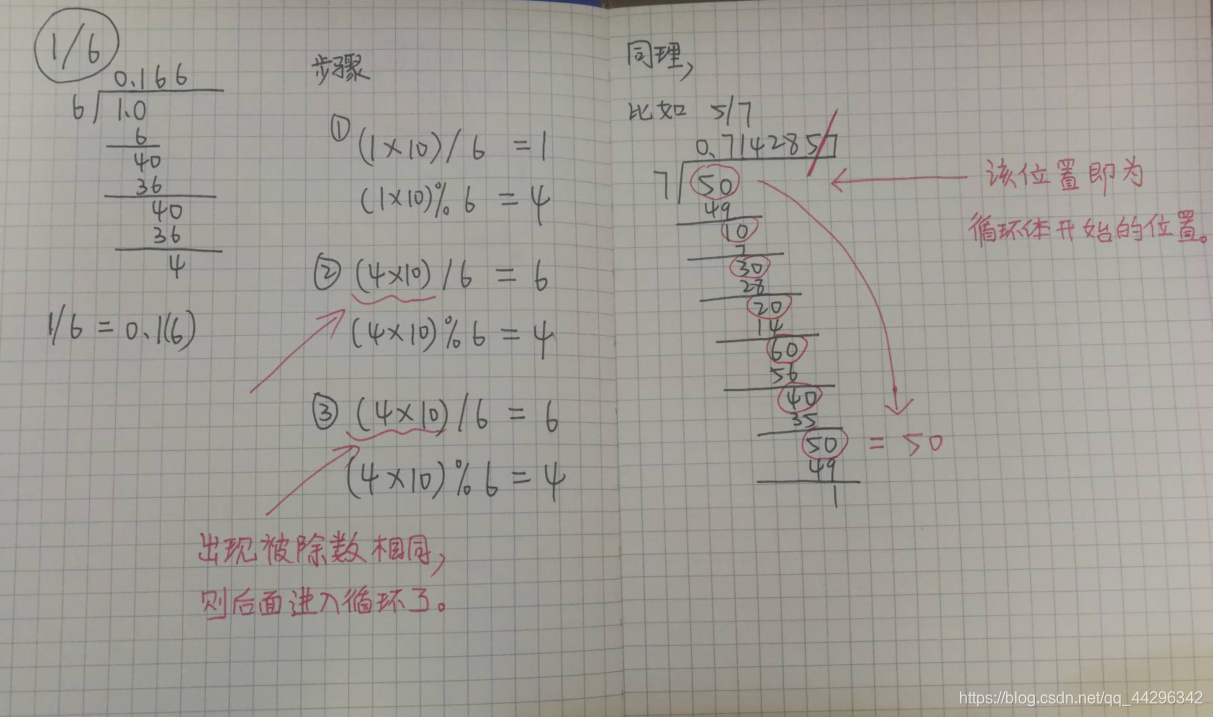 1/6
0.166
6 1.0
6
40
36
40
36
4
1/6 = 0.1(6)
步骤
① (1×10)/6 = 1
(1×10)%6 = 4
② (4×10)/6 = 6
(4×10)%6 = 4
③ (4×10)/6 = 6
(4×10)%6 = 4
出现被除数相同,
则后面进入循环了。
同理,
比如 5/7
0.7142857
7 50
49
10
7
30
28
20
14
60
56
40
35
50 = 50
49
1
该位置即为
循环体开始的位置。
https://blog.csdn.net/qq_44296342